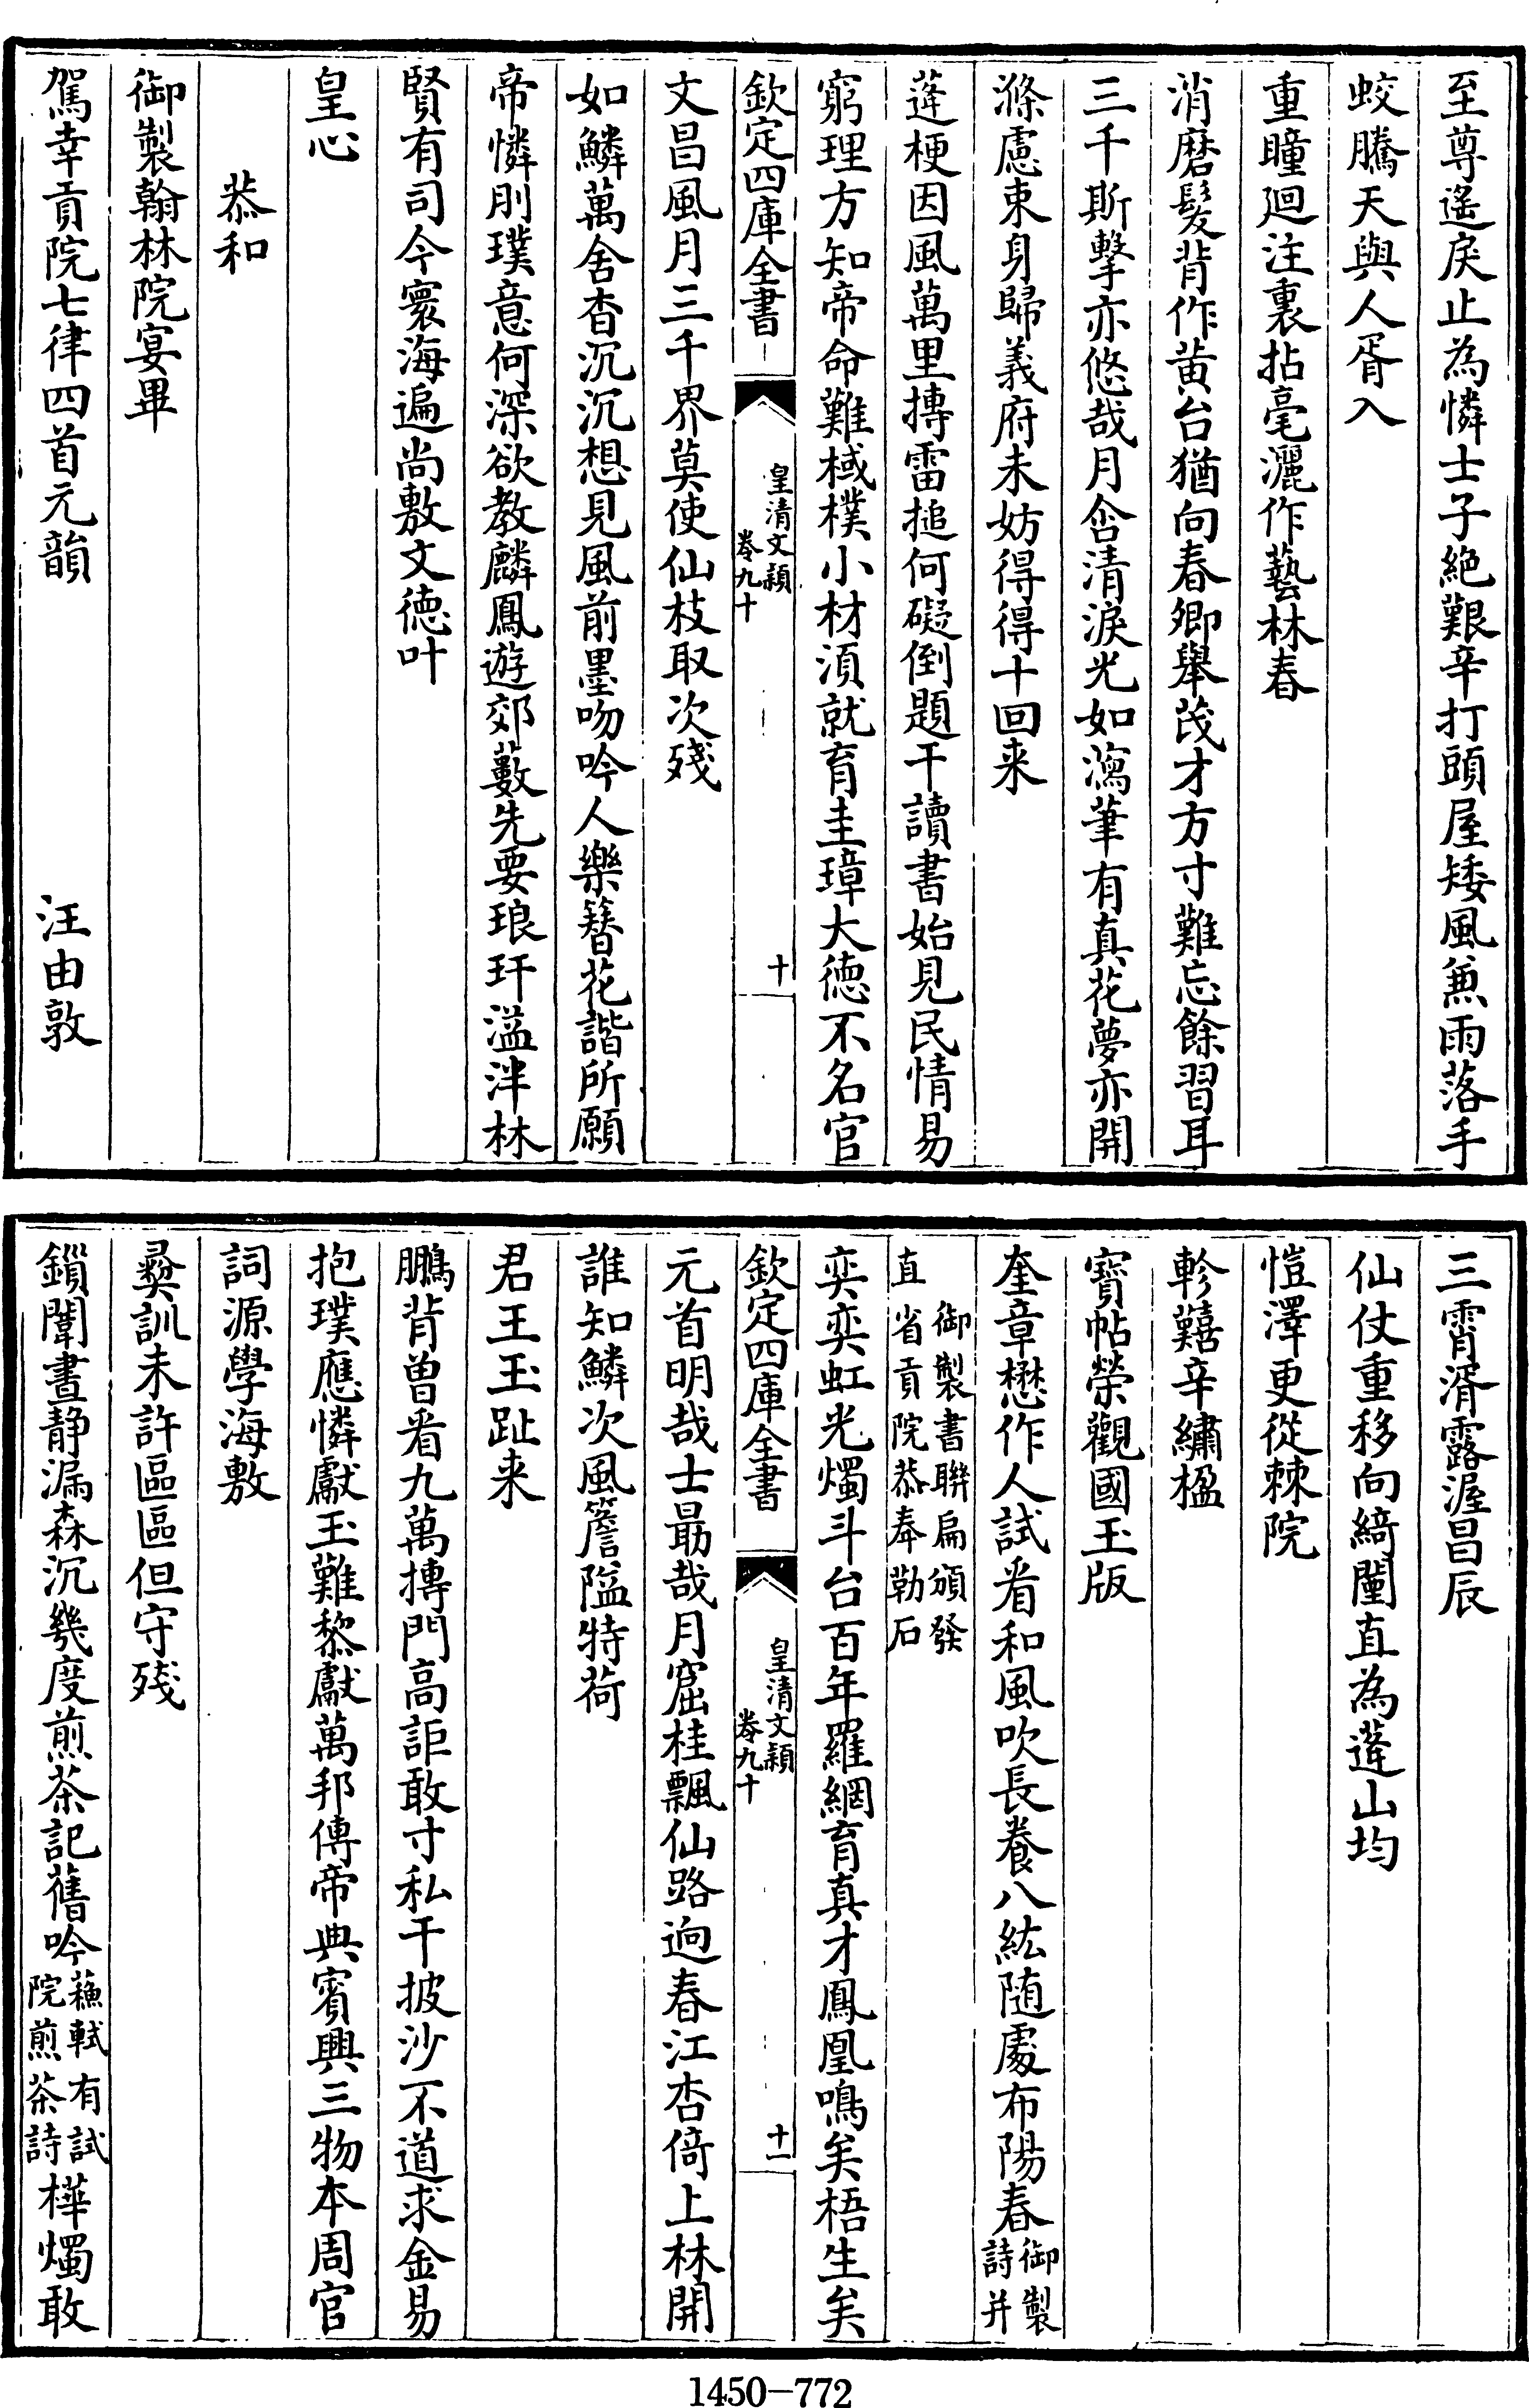 至尊遙戾止為憐士子絶艱辛打頭屋矮風兼雨落手
蛟騰天與人胥入
重瞳迴注裏拈毫灑作藝林春
消磨髮背作黄台猶向春卿舉茂才方寸難忘餘習耳
三千斯擊亦悠哉月含清淚光如瀉筆有真花夢亦開
滌慮束身歸義府未妨得得十回来
蓬梗因風萬里摶雷搥何礙倒題干讀書始見民情易
窮理方知帝命難棫樸小材須就育圭璋大徳不名官
欽定四庫全書
皇清文穎
卷九十
十
文昌風月三千界莫使仙枝取次殘
如鱗萬舍杳沉沉想見風前墨吻吟人樂簪花諧所願
帝憐刖璞意何深欲教麟鳳遊郊藪先要琅玕溢泮林
賢有司今寰海遍尚敷文徳叶
皇心
恭和
御製翰林院宴畢
駕幸貢院七律四首元韻 汪由敦
三霄湑露渥昌辰
仙仗重移向綺闉直為蓬山均
愷澤更從棘院
軫囏辛繡楹
寳帖榮觀國玉版
奎章懋作人試看和風吹長養八紘随處布陽春御製詩并
御製書聯扁頒發
直省貢院恭奉勒石
奕奕虹光燭斗台百年羅網育真才鳳凰鳴矣梧生矣
欽定四庫全書
皇清文穎
卷九十
十一
元首明哉士最哉月窟桂飄仙路逈春江杏倚上林開
誰知鱗次風簷隘特荷
君王玉趾来
鵬背曾看九萬摶門高詎敢寸私干披沙不道求金易
抱璞應憐獻玉難黎獻萬邦傳帝典賓興三物本周官
詞源學海敷
彛訓未許區區但守殘
鎖闈晝静漏森沉幾度煎茶記舊吟蘇軾有試院煎茶詩樺燭敢
1450-772